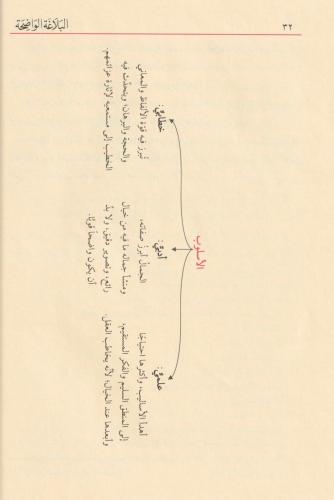 البَلَاغَة الوَاضِحَة
٣٢
الأسلوب
علميٌّ:
أهدأ الأساليب، وأكثرها احتياجًا
إلى المنطق السليم والفكر المستقيم،
وأبعدها عند الخيال؛ لأنه يخاطب العقل.
أدبيٌّ:
الجمال أبرز صفاته،
ومنشأ جماله ما فيه من خيال
رائع، وتصوير دقيق، ولا بدَّ
أن يكون واضحاً قويًّا.
خطابيٌّ:
تبرز فيه قوة الألفاظ والمعاني
والحجة والبرهان؛ ويتحدَّث فيه
الخطيب إلى مستمعيه لإثارة عزائمهم.